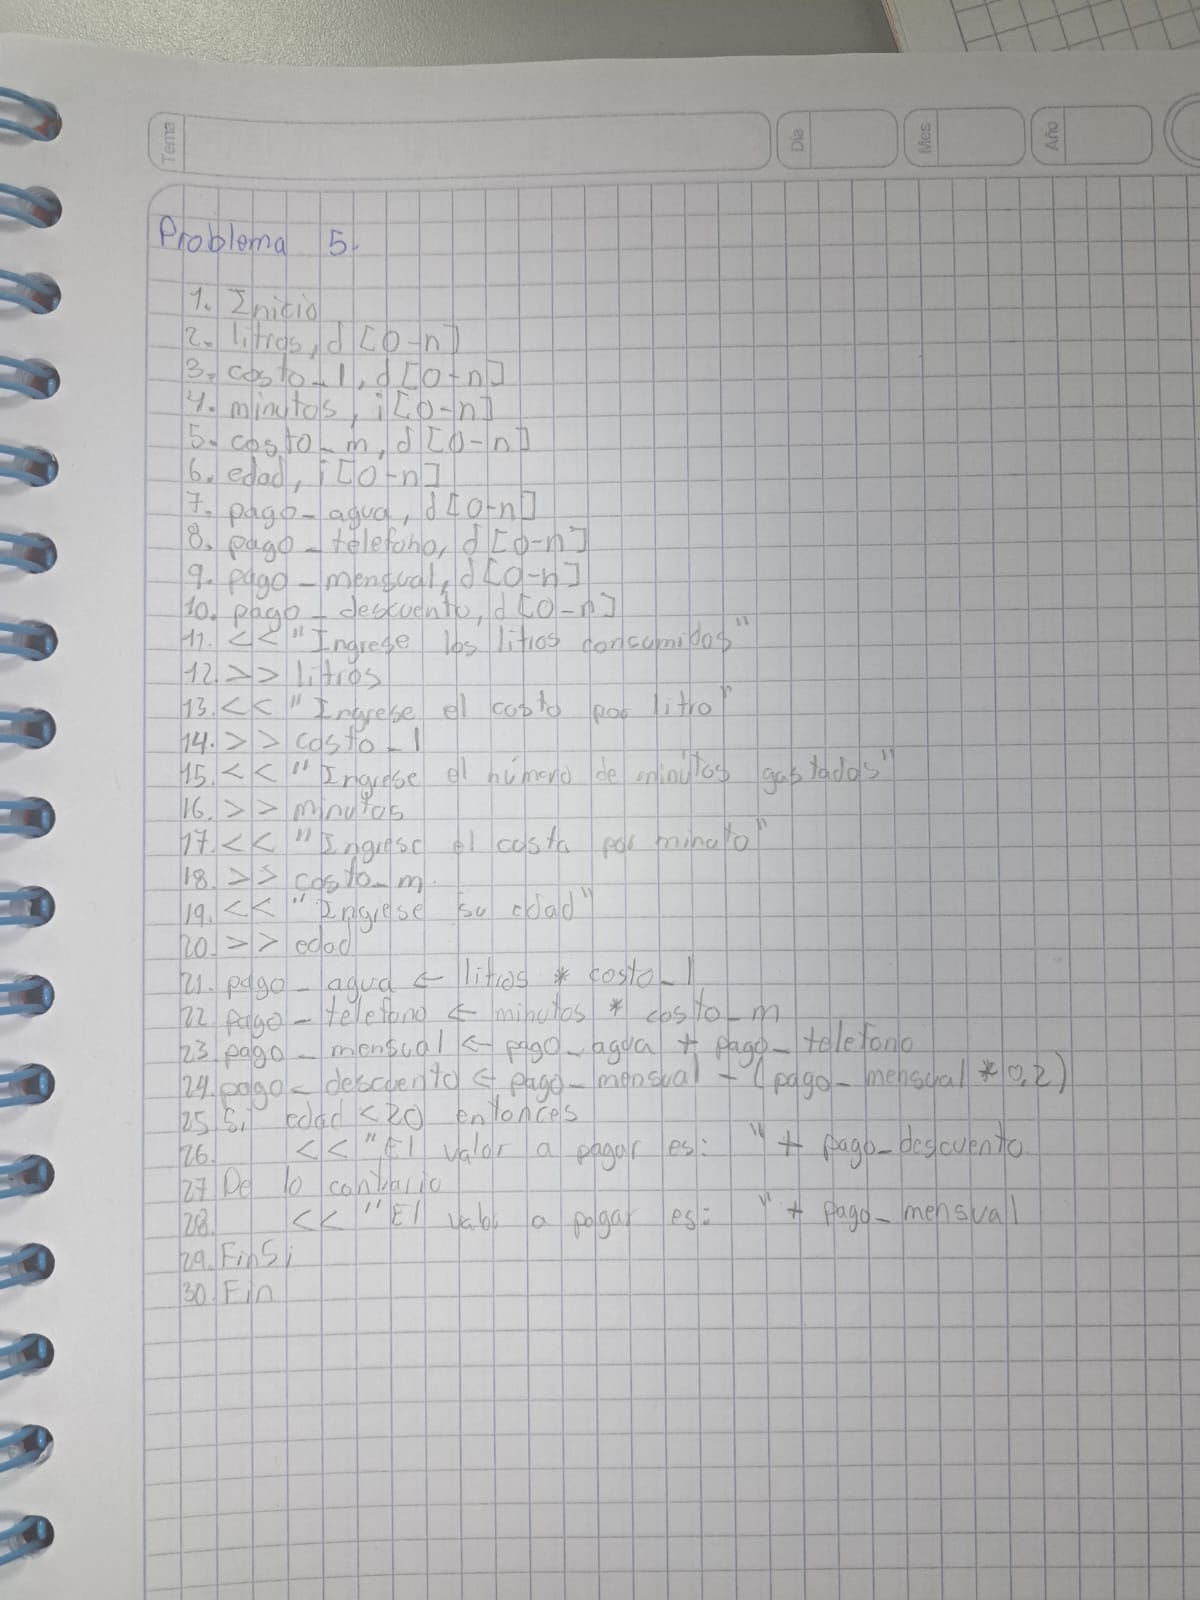 Tema
Día
Mes
Año
Problema 5.
1. Inicio
2. litros, d [0-n]
3. costo_l, d [0-n]
4. minutos, i [0-n]
5. costo_m, d [0-n]
6. edad, i [0-n]
7. pago_agua, d [0-n]
8. pago_telefono, d [0-n]
9. pago_mensual, d [0-n]
10. pago_descuento, d [0-n]
11. << "Ingrese los litros consumidos"
12. >> litros
13. << "Ingrese el costo por litro"
14. >> costo_l
15. << "Ingrese el número de minutos gastados"
16. >> minutos
17. << "Ingrese el costo por minuto"
18. >> costo_m.
19. << "Ingrese su edad"
20. >> edad
21. pago_agua ← litros * costo_l
22 pago_telefono ← minutos * costo_m
23 pago_mensual ← pago_agua + pago_telefono
24. pago_descuento ← pago_mensual - (pago_mensual * 0,2)
25 Si edad < 20 entonces
26. << "El valor a pagar es: " + pago_descuento
27 De lo contrario
28. << "El valor a pagar es: " + pago_mensual
29. FinSi
30. Fin